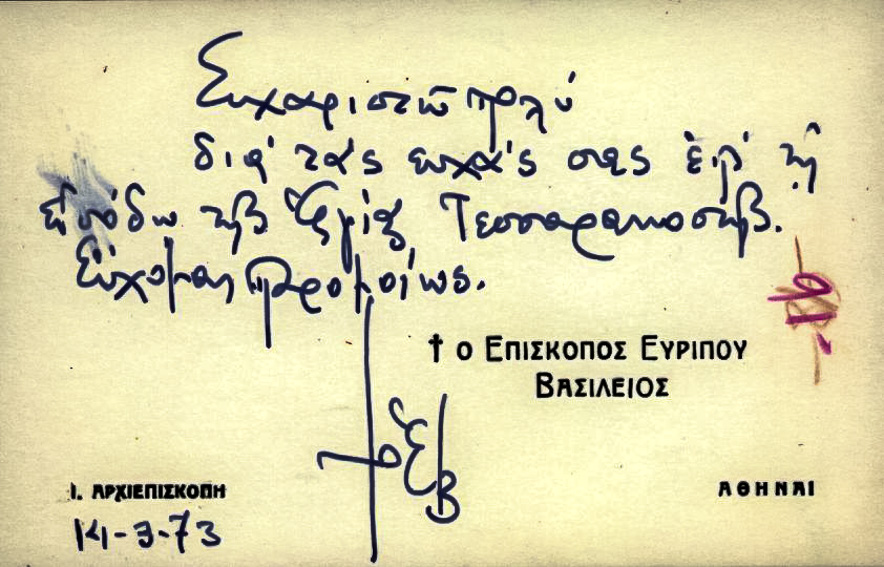 Εὐχαριστῶ πολύ
διά τάς εὐχάς σας ἐπί τῇ
εἰσόδῳ τῆς Ἁγίας Τεσσαρακοστῆς.
Εὔχομαι παρομοίως.
† Ο ΕΠΙΣΚΟΠΟΣ ΕΥΡΙΠΟΥ
ΒΑΣΙΛΕΙΟΣ
† ὁ Ε Β
Ι. ΑΡΧΙΕΠΙΣΚΟΠΗ
ΑΘΗΝΑΙ
14-3-73